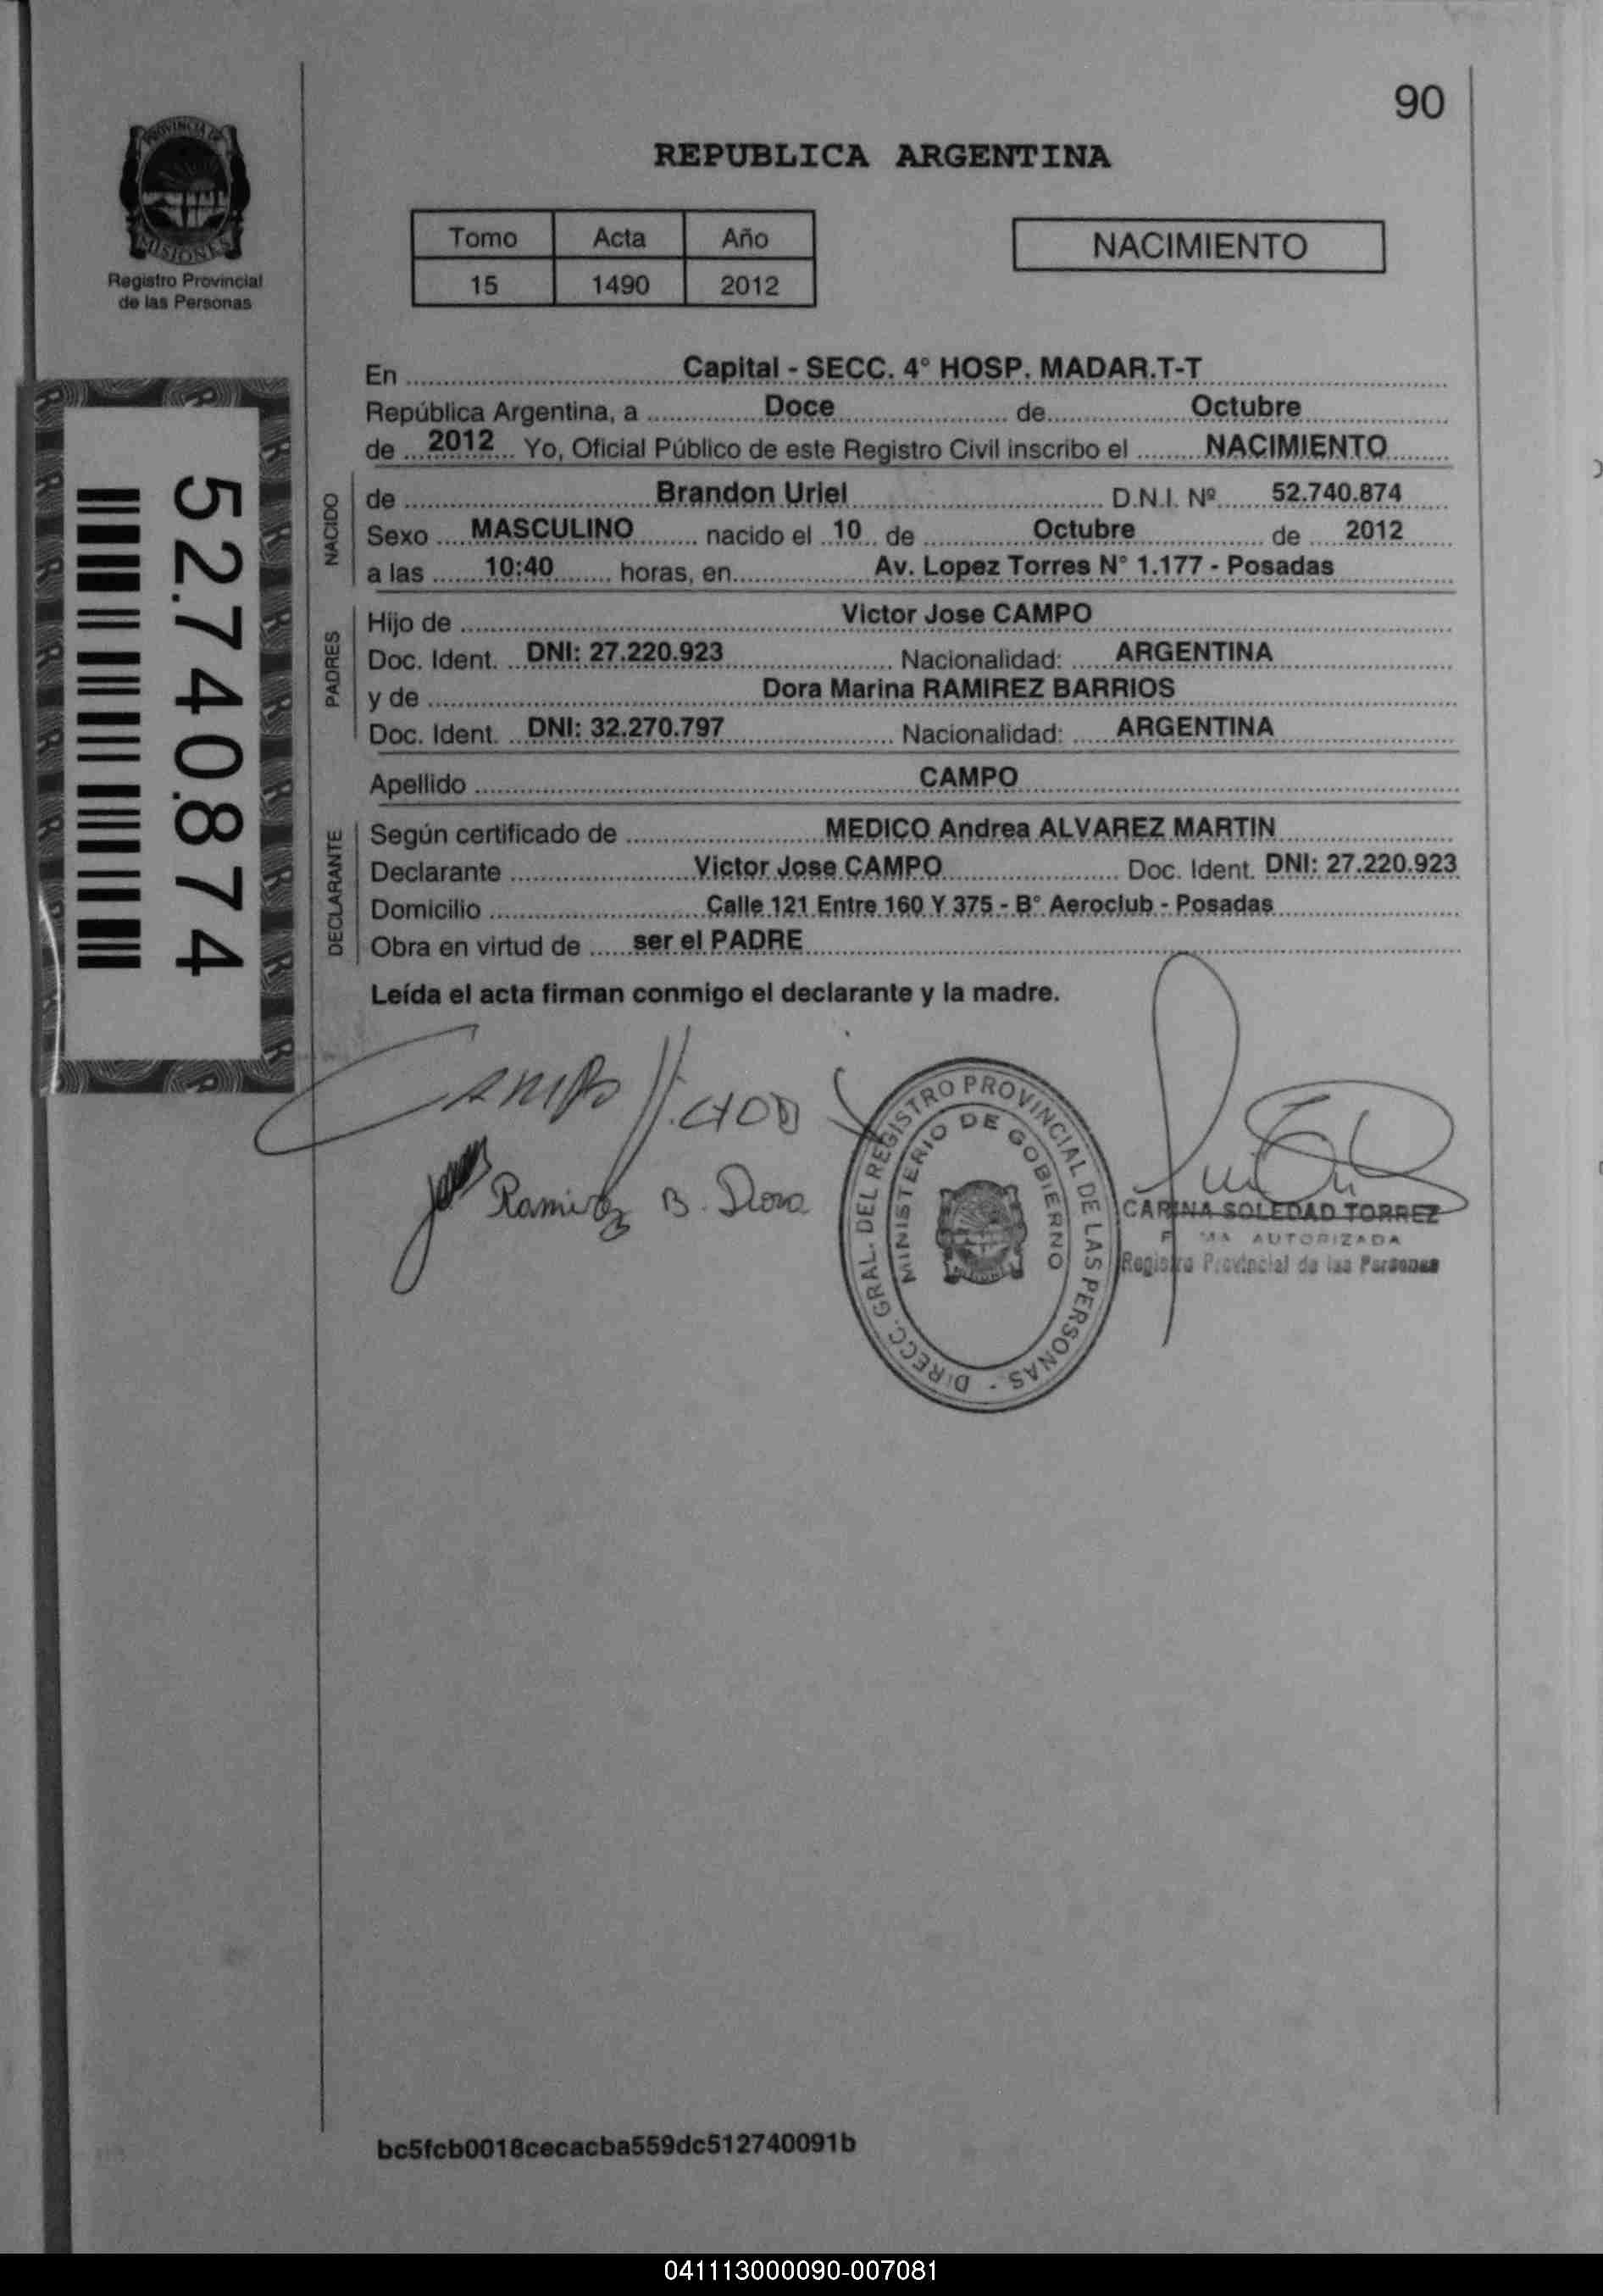 90
PROVINCIA DE
MISIONES
Registro Provincial
de las Personas
REPUBLICA ARGENTINA
Tomo Acta Año
15 1490 2012
NACIMIENTO
52.740.874
En Capital - SECC. 4° HOSP. MADAR.T-T
República Argentina, a Doce de Octubre
de 2012 Yo, Oficial Público de este Registro Civil inscribo el NACIMIENTO
NACIDO
de Brandon Uriel D.N.I. Nº 52.740.874
Sexo MASCULINO nacido el 10 de Octubre de 2012
a las 10:40 horas, en Av. Lopez Torres N° 1.177 - Posadas
PADRES
Hijo de Victor Jose CAMPO
Doc. Ident. DNI: 27.220.923 Nacionalidad: ARGENTINA
y de Dora Marina RAMIREZ BARRIOS
Doc. Ident. DNI: 32.270.797 Nacionalidad: ARGENTINA
Apellido CAMPO
DECLARANTE
Según certificado de MEDICO Andrea ALVAREZ MARTIN
Declarante Victor Jose CAMPO Doc. Ident. DNI: 27.220.923
Domicilio Calle 121 Entre 160 Y 375 - B° Aeroclub - Posadas
Obra en virtud de ser el PADRE
Leída el acta firman conmigo el declarante y la madre.
Campo
Ramirez B. Dora
DIRECC. GRAL. DEL REGISTRO PROVINCIAL DE LAS PERSONAS -
MINISTERIO DE GOBIERNO
CARINA SOLEDAD TORREZ
AUTORIZADA
Registro Provincial de las Personas
bc5fcb0018cecacba559dc512740091b
041113000090-007081